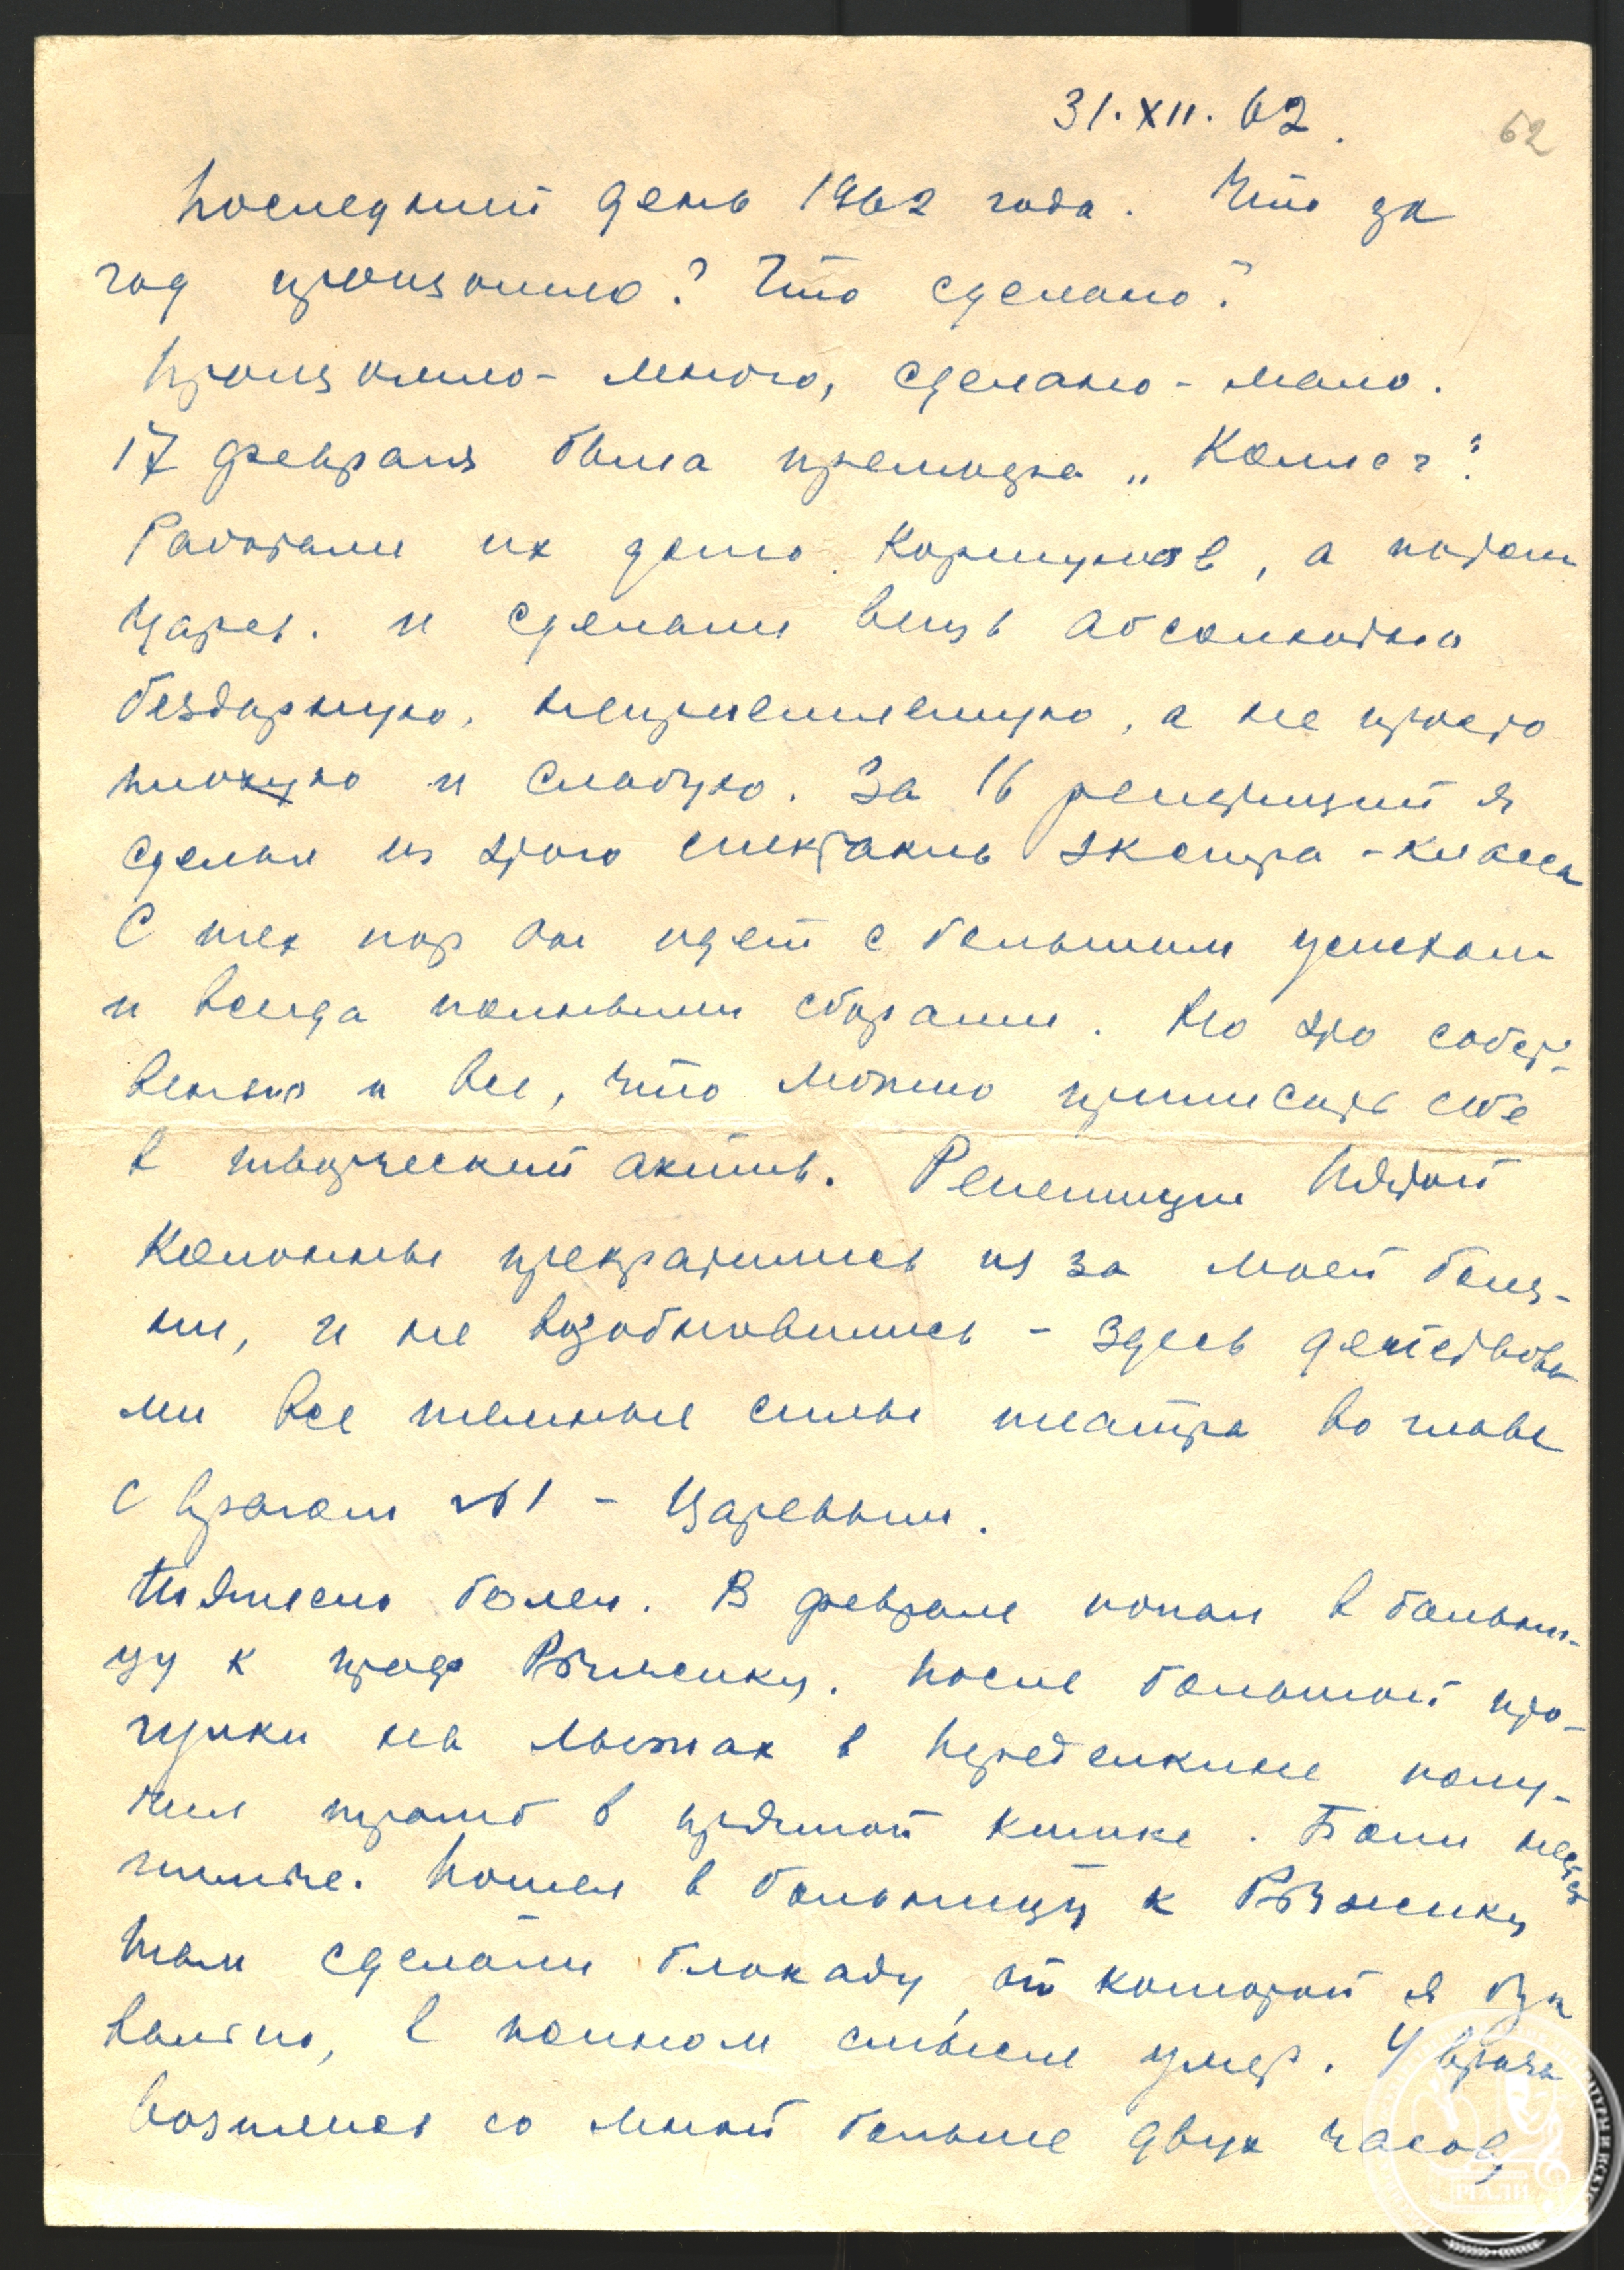 31.XII.62.
62
Последний день 1962 года. Что за
год произошло? Что сделано?
Произошло - много, сделано - мало.
17 февраля была премьера „Коллег".
Работали их до Коршунов, а потом
Царев. и сделали вещь абсолютно
бездарную, неприемлемую, а не просто
плохую и слабую. За 16 репетиций я
сделал из этого спектакль экстра-класса
С тех пор он идет с большим успехом
и всегда полными сборами. Но это собст-
венно и все, что можно приписать себе
в творческий актив. Репетиции Пятой
Колонны прекратились из за моей болез-
ни, и не возобновились - здесь действова
ли все темные силы театра во главе
с врагом №1 - Царевым.
Тяжело болел. В феврале попал в больни-
цу к проф Рыжику. После большой про-
гулки на лыжах в Переделкине полу-
чил тромб в прямой кишке. Боли
Пошел в больницу к Рыжику
Там сделали блокаду, от которой я бук
вально, в полном смысле умер. 4 врача
возились со мной больше двух часов,
РГАЛИ